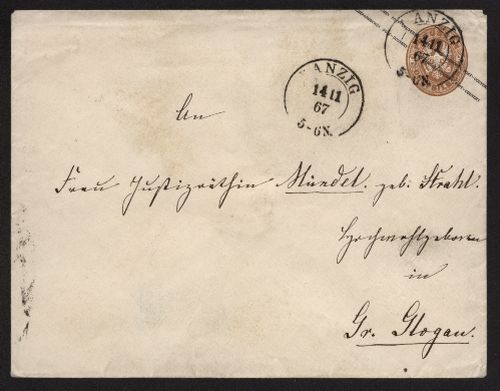 DANZIG
14 11
67
5-6N.
ANZIG
14 11
67
5-6N.
An
Frau Justizräthin Mündel. geb. Strahl.
Hochwohlgeboren
in
Gr. Glogau.